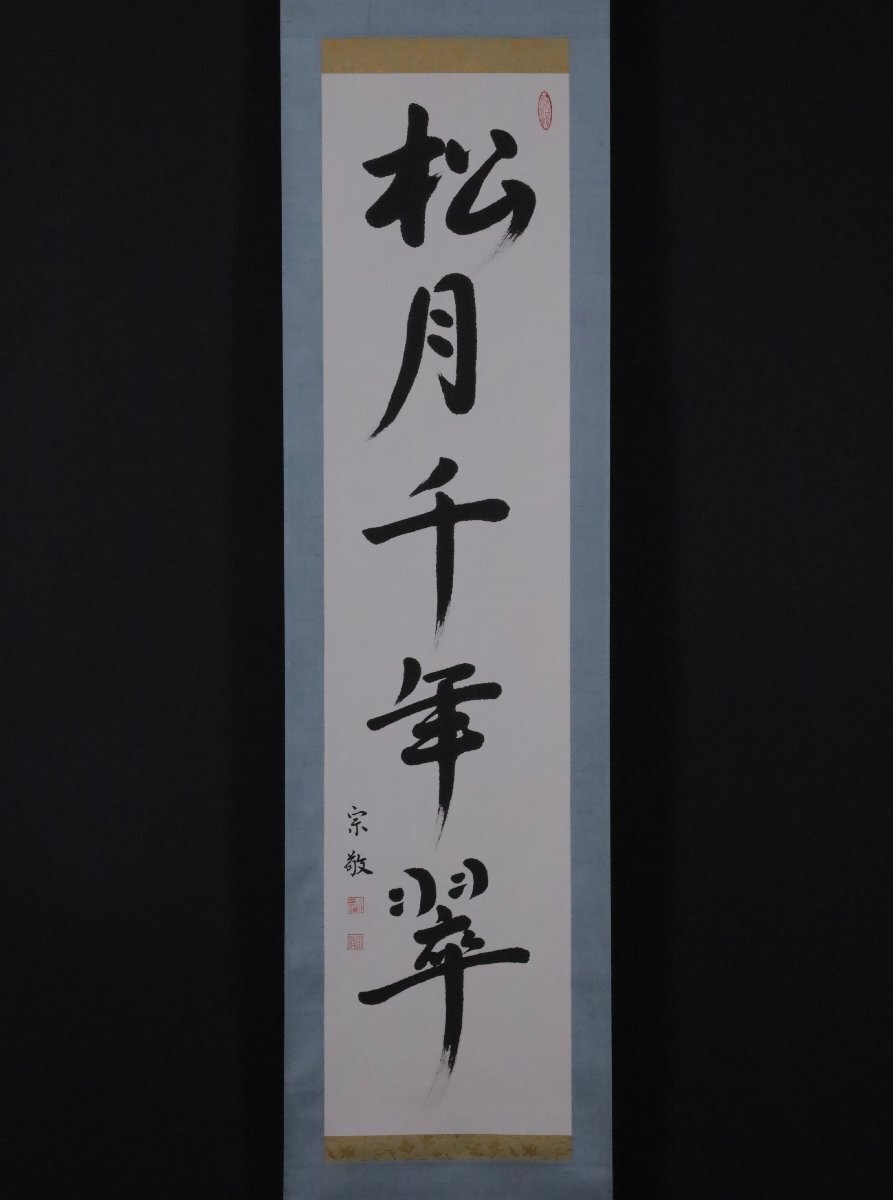 松月千年翠
宗敬